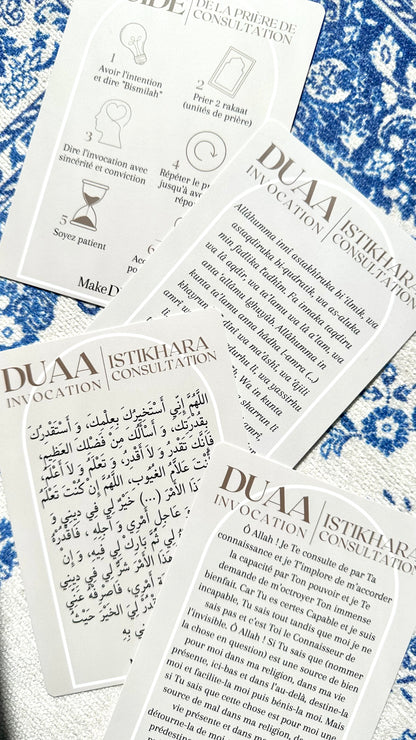 DE LA PRIÈRE DE
CONSULTATION
1
Avoir l'intention
et dire "Bismilah"
2
Prier 2 rakaat
(unités de prière)
3
Dire l'invocation avec
sincérité et conviction
4
Répéter le
jusqu'à
5
Soyez patient
Make
DUAA
INVOCATION
ISTIKHARA
CONSULTATION
Allâhumma innî astakhiruka bi'ilmik, wa
astaqdiruka bi-qudratik, wa as-aluka
min fadlika l'adhîm. Fa innaka taqdiru
wa lâ aqdir, wa ta'lamu wa lâ a'lam, wa
anta 'alâmu lghuyûb. Allâhumma in
kunta ta'lamu anna hâdha l-amra (..)
khayrun wa ma'âshî, wa 'âjili
amrî lî, wa yassirhu
Wa in kunta
sharrun lî
DUAA
INVOCATION
ISTIKHARA
CONSULTATION
اللَّهُمَّ إِنِّي أَسْتَخِيرُكَ بِعِلْمِكَ، وَ أَسْتَقْدِرُكَ
بِقُدْرَتِكَ، وَ أَسْأَلُكَ مِنْ فَضْلِكَ العَظِيمِ،
فَإِنَّكَ تَقْدِرُ وَ لاَ أَقْدِرُ، وَ تَعْلَمُ وَ لاَ أَعْلَمُ،
أَنْتَ عَلاَّمُ الغُيُوبِ، اللَّهُمَّ إِنْ كُنْتَ تَعْلَمُ
هَذَا الأَمْرَ (...) خَيْرٌ لِي فِي دِينِي وَ
عَاجِلِ أَمْرِي وَ آجِلِهِ، فَاقْدُرْهُ
لِي ثُمَّ بَارِكْ لِي فِيهِ، وَ إِنْ
هَذَا الأَمْرَ لِي فِي دِينِي
أَمْرِي، فَاصْرِفْهُ
لِيَ الخَيْرَ حَيْثُ
بِهِ
DUAA
INVOCATION
ISTIKHARA
CONSULTATION
Ô Allah ! Je Te consulte de par Ta
connaissance et je T'implore de m'accorder
la capacité par Ton pouvoir et je Te
demande de m'octroyer Ton immense
bienfait. Car Tu es certes Capable et je suis
incapable, Tu sais tout tandis que moi je ne
sais pas et c'est Toi le Connaisseur de
l'invisible. Ô Allah ! Si Tu sais que (nommer
la chose en question) est une source de bien
pour moi dans ma religion, dans ma vie
présente, ici-bas et dans l'au-delà, destine-la
moi et facilite-la moi puis bénis-la moi. Mais
si Tu sais que cette chose est pour moi une
source de mal dans ma religion, dans
vie présente et dans
détourne-la de moi